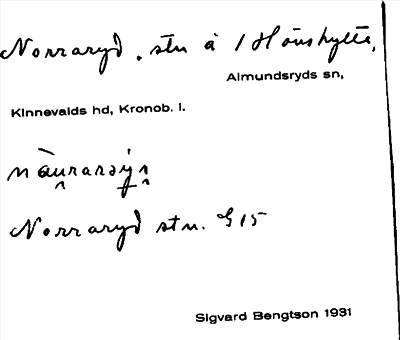 Norraryd, stn å 1 Hönshylte,
Almundsryds sn,
Kinnevalds hd, Kronob. l.
Norraryd stn. G 15
Sigvard Bengtson 1931